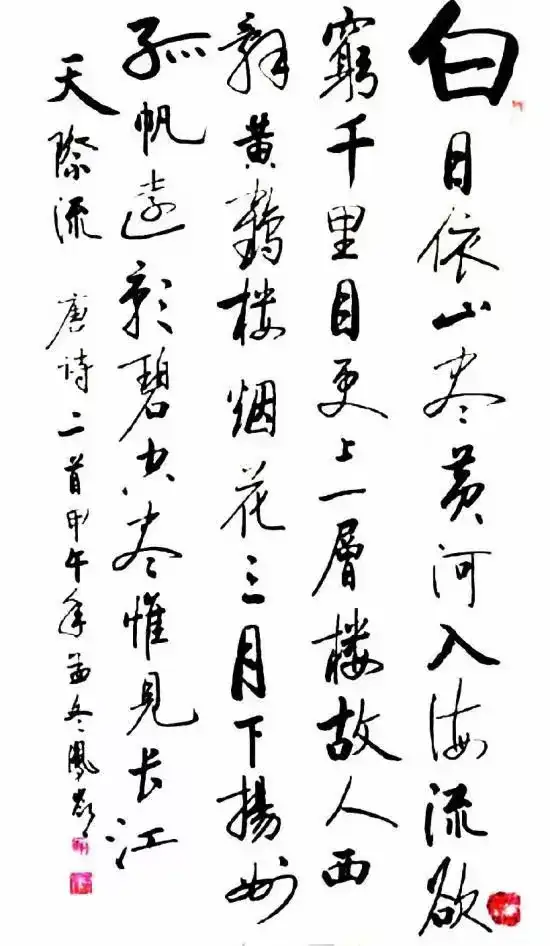 白日依山尽黄河入海流欲
窮千里目更上一層楼故人西
辞黄鶴楼烟花三月下揚州
孤帆遠影碧空尽惟見长江
天際流 唐诗二首甲午年孟冬鳳